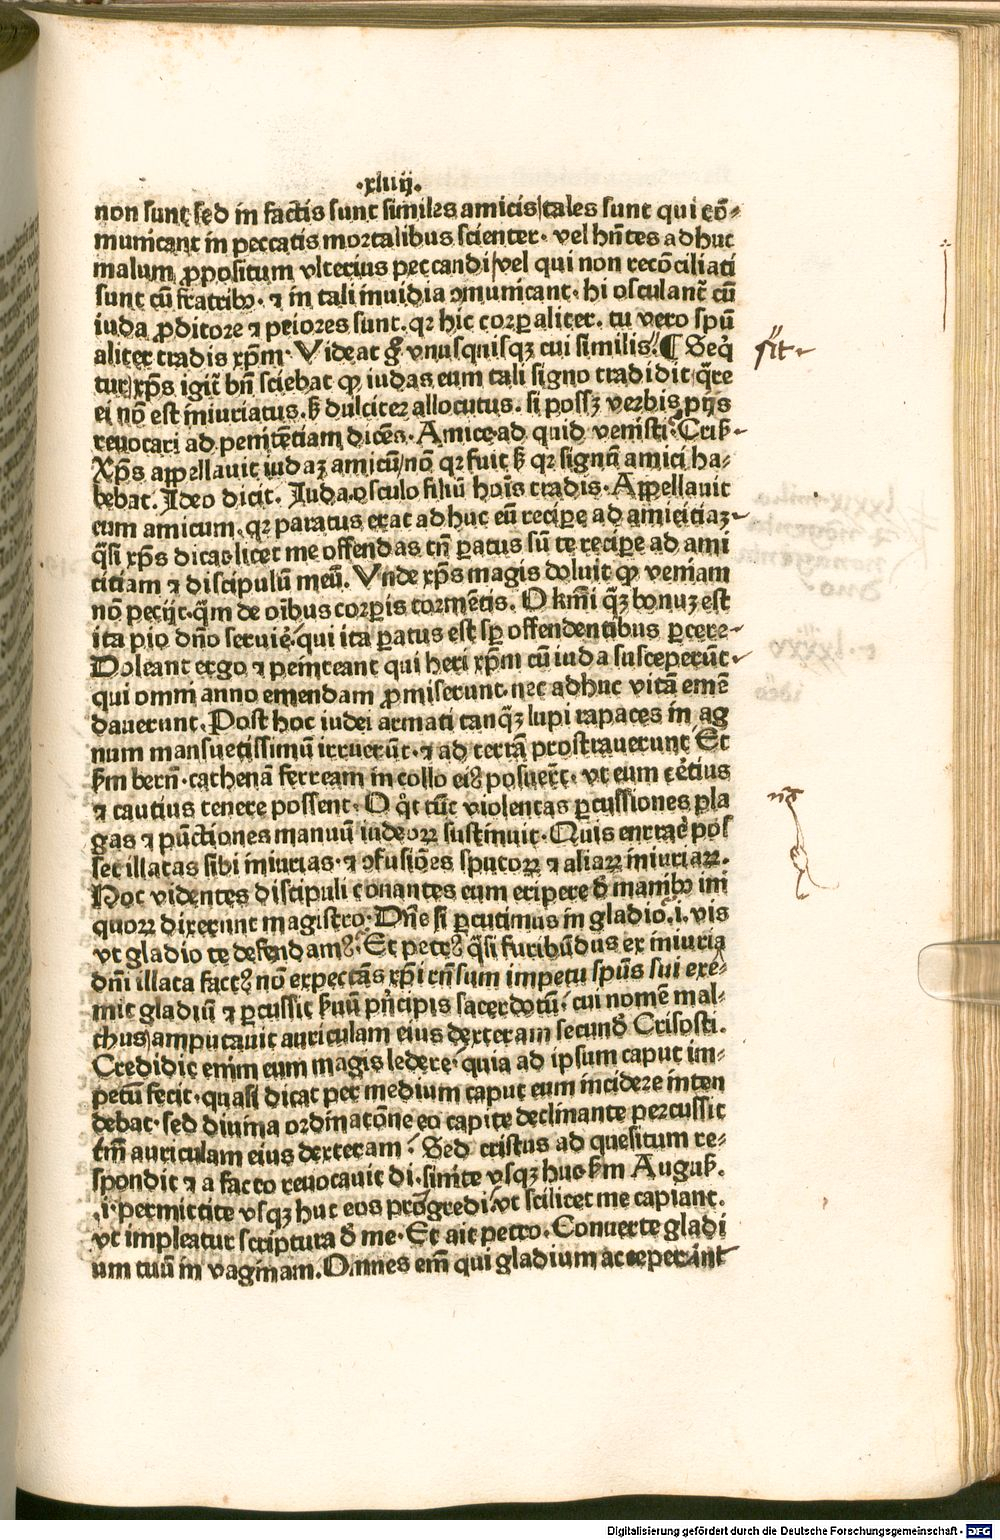 ·xliiij.
non sunt sed in factis sunt similes amicis/tales sunt qui cō⸗
municant in peccatis mortalibus scienter· vel hn̄tes adhuc
malum ꝓpositum vlterius peccandi/vel qui non recōciliati
sunt cū fratribꝰ· ⁊ in tali inuidia ꝯmunicant· hi osculant̄ cū
iuda ꝓditore ⁊ peiores sunt. qꝛ hic corꝑaliter. tu vero spū
aliter tradis xp̄m· Videat gͦ vnusquisqꝫ cui similis. ¶ Seq̇
tur/xp̄s igit̄ bn̄ sciebat ꝙ iudas eum tali signo tradidit q̄re
ei nō est iniuriatus. sꝫ dulciter allocutus. si possꝫ verbis pijs
reuocari ad penitētiam dicēs. Amice ad quid venisti. Crisꝭ
Xp̄s appellauit iudaꝫ amicū/nō qꝛ fuit sꝫ qꝛ signū amici ha⸗
bebat. Ideo dicit. Iuda osculo filiū hoīs tradis. Appellauit
eum amicum. qꝛ paratus erat adhuc eū recipe ad amicitiaꝫ
q̄si xp̄s dicat licet me offendas tn̄ ꝑatus sū te recipe ad ami
citiam ⁊ discipulū meū. Vnde xp̄s magis doluit ꝙ veniam
nō pecijt q̄m de oībus corꝑis tormētis. O km̄i q̄ꝫ bonuꝫ est
ita pio dn̄o seruiē. qui ita ꝑatus est sꝑ offendentibus ꝑcere
Doleant ergo ⁊ peniteant qui heri xp̄m cū iuda susceperūt
qui omni anno emendam ꝓmiserunt nec adhuc vitā emē
dauerunt. Post hoc iudei armati tanq̄ꝫ lupi rapaces in ag
num mansuetissimū irruerūt. ⁊ ad terrā prostrauerunt Et
sm̄ bern̄. cathenā ferream in collo eiꝰ posuer̄t. vt eum cētius
⁊ cautius tenere possent. O q̇t tūc violentas ꝑcussiones pla
gas ⁊ pūctiones manuū iudeoꝝ sustinuit. Quis enarraē pos
set illatas sibi iniurias. ⁊ ꝯfusiōes sputoꝝ ⁊ aliaꝝ iniuriaꝝ.
Hoc videntes discipuli conantes eum eripere de manibꝰ ini
quoꝝ dixerunt magistro. Dn̄e si ꝑcutimus in gladio .i. vis
vt gladio te defendamꝰ. Et petrꝰ q̄si furibūdus ex iniuria
dn̄i illata factꝰ nō expectās xp̄i rn̄sum impetu spūs sui exe⸗
mit gladiū ⁊ ꝑcussit suū pn̄cipis sacerdotū. cui nomē mal⸗
chus/amputauit auriculam eius dexteram secund Crisosti.
Credidit enim eum magis ledere. quia ad ipsum caput im⸗
petū fecit. quasi dicat per medium caput eum incidere inten
debat. sed diuina ordinatōne eo capite declinante percussit
tm̄ auriculam eius dexteram. Sed cristus ad quesitum re⸗
spondit ⁊ a facto reuocauit di. sinite vsqꝫ huc sm̄ Augusꝭ.
.i. permittite vsqꝫ huc eos progredi. vt scilicet me capiant.
vt impleatur scriptura de me. Et ait petro. Conuerte gladi
um tuū in vaginam. Omnes em̄ qui gladium acceperint